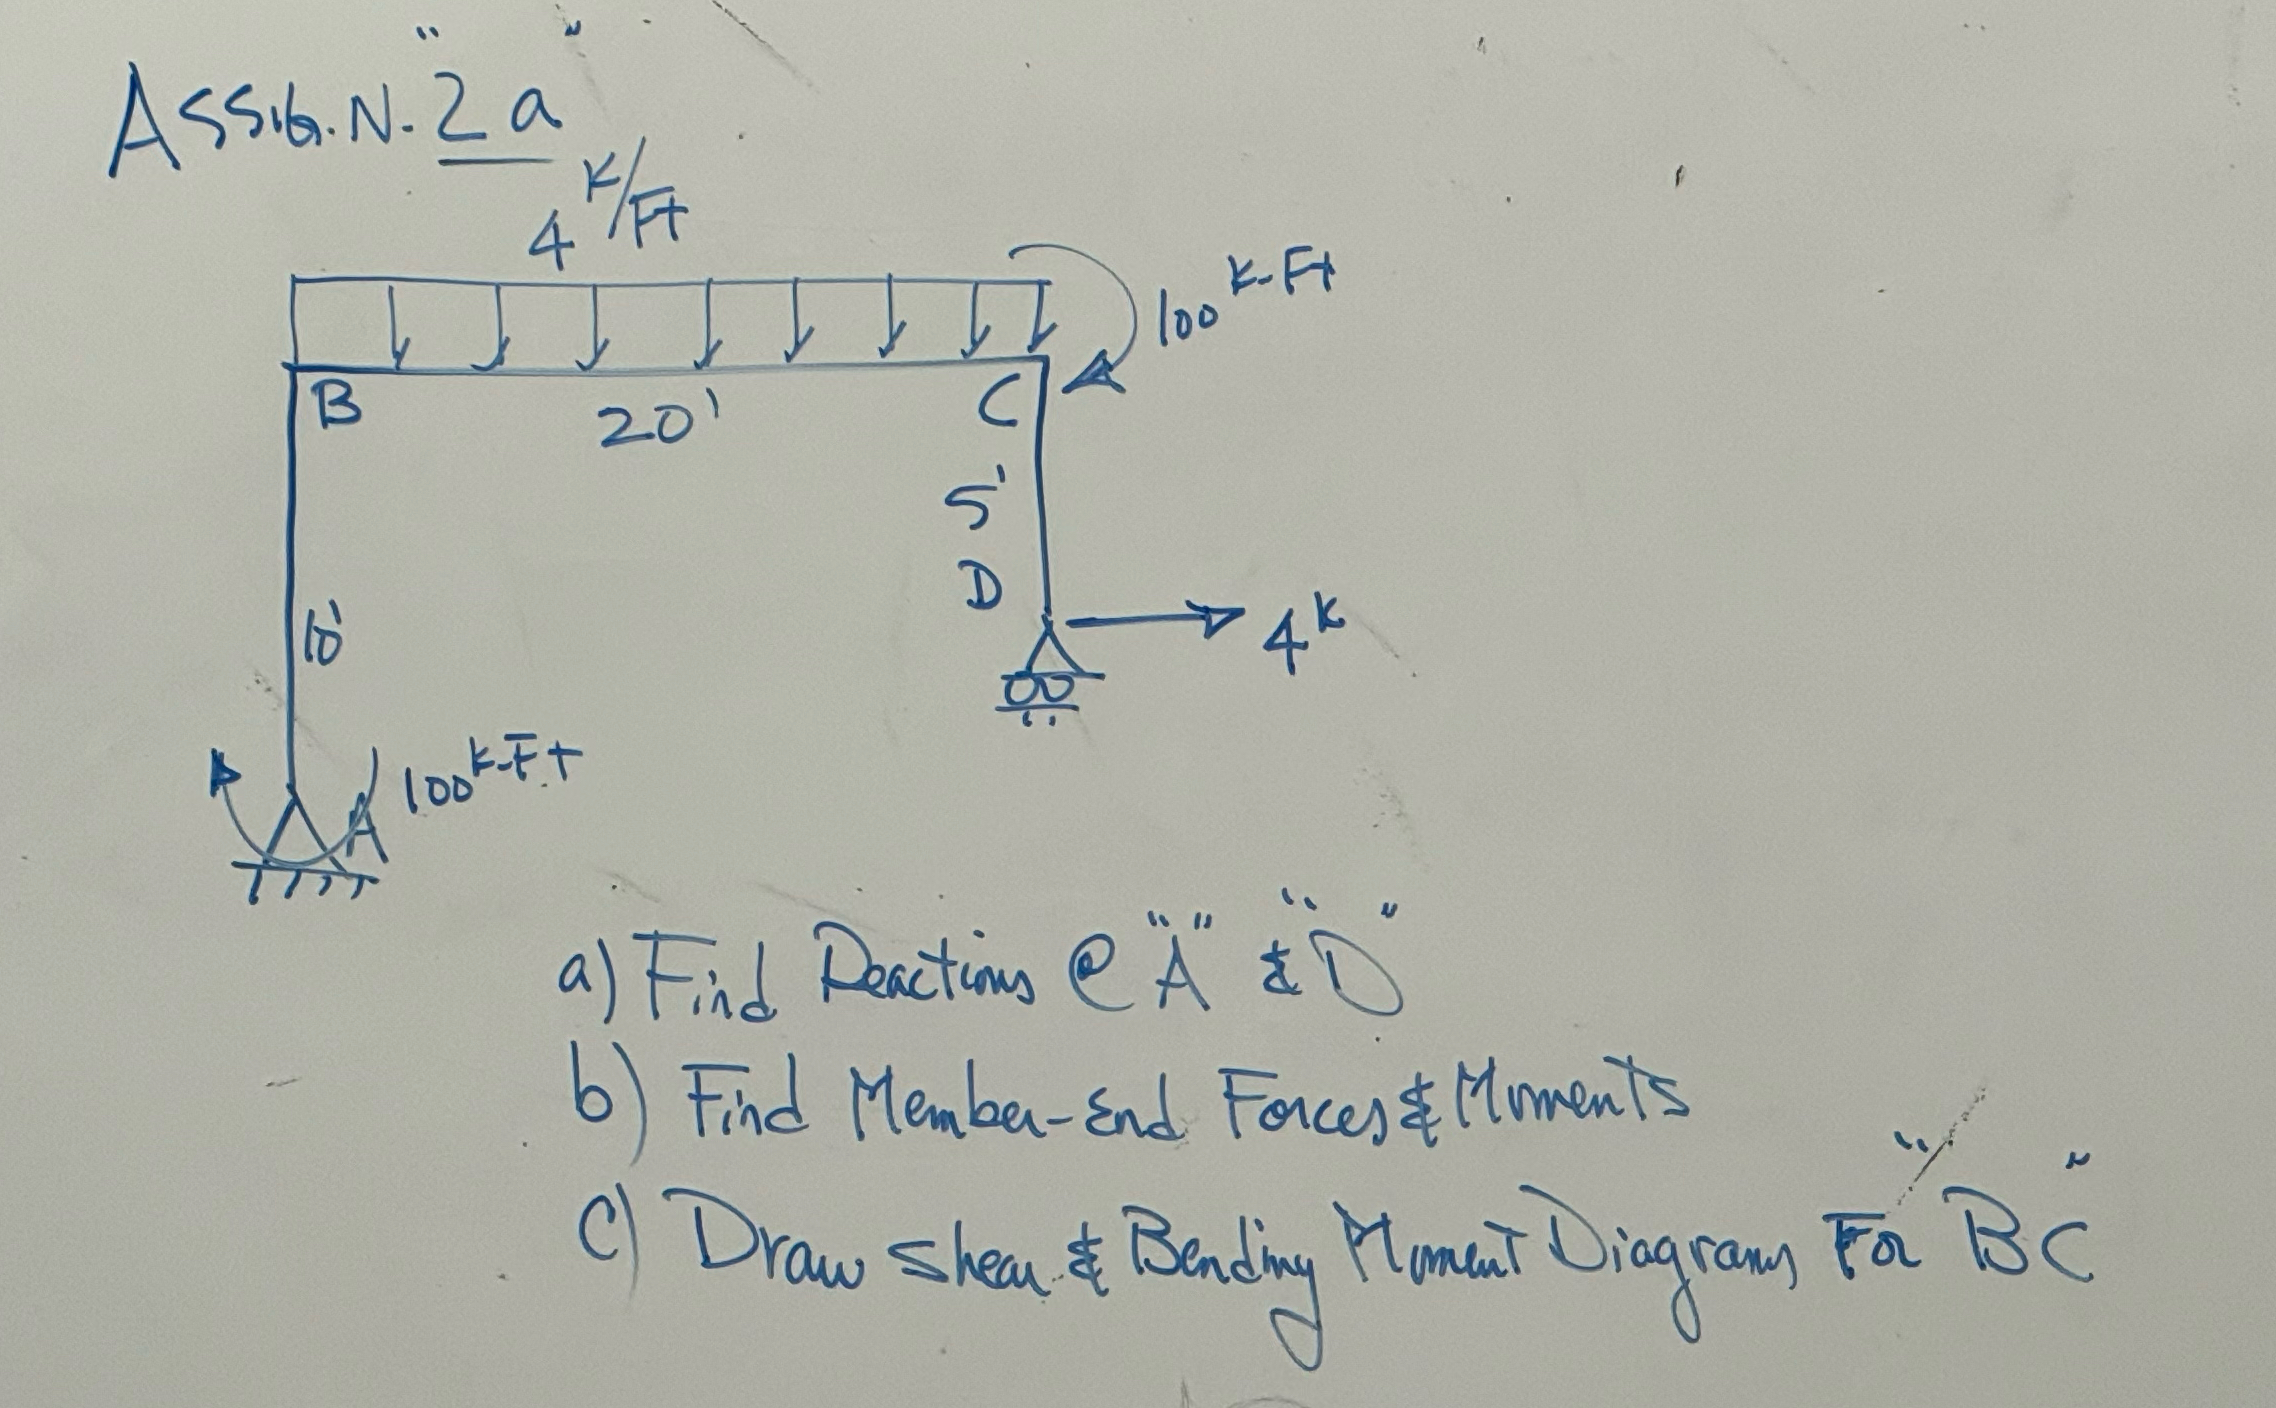 Assig.N. "2a"
4 K/Ft
100 K-Ft
B
20'
C
5'
D
4 K
10'
100 K-Ft
A
a) Find Reactions @ "A" & "D"
b) Find Member-End Forces & Moments
c) Draw Shear & Bending Moment Diagrams For "BC"